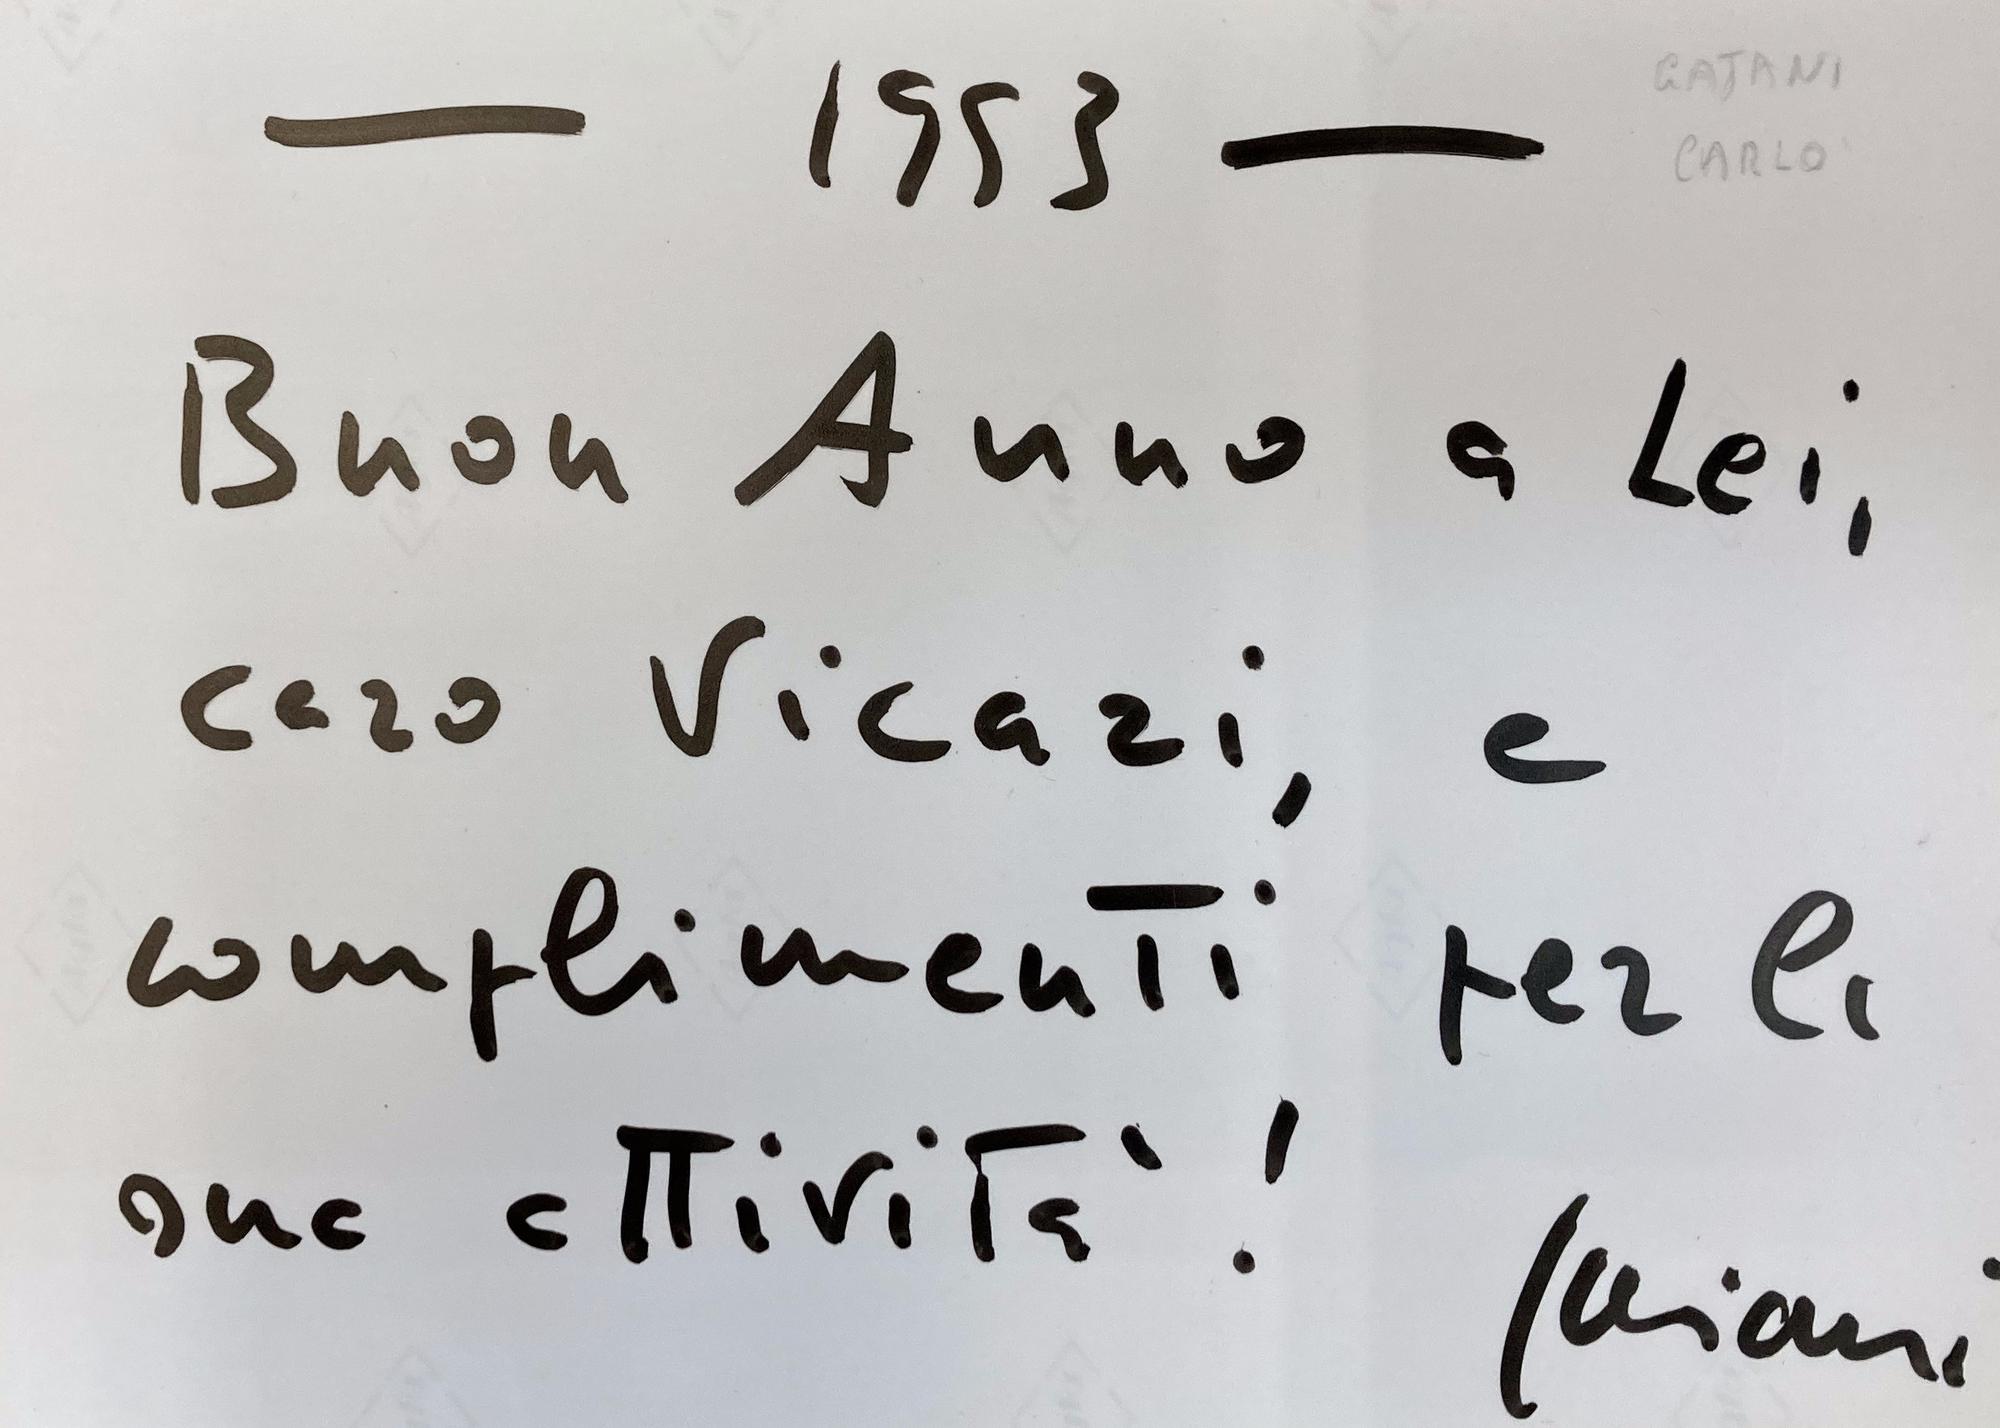 — 1953 —
GAJANI
CARLO
Buon Anno a Lei,
caro Vicari, e
complimenti per la
sua attività!